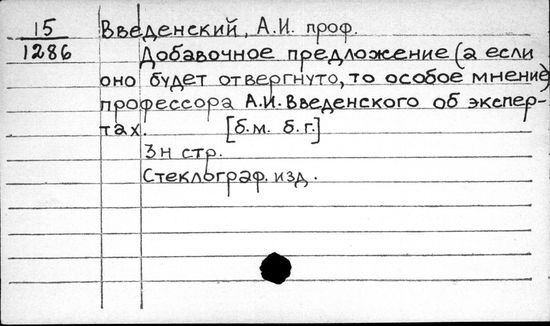 15 Введенский, А.И. проф.
1286 Добавочное предложение (а если
оно будет отвергнуто, то особое мнение)
профессора А.И. Введенского об экспер-
тах. [б.м. б.г.]
3н стр.
Стеклограф. изд.